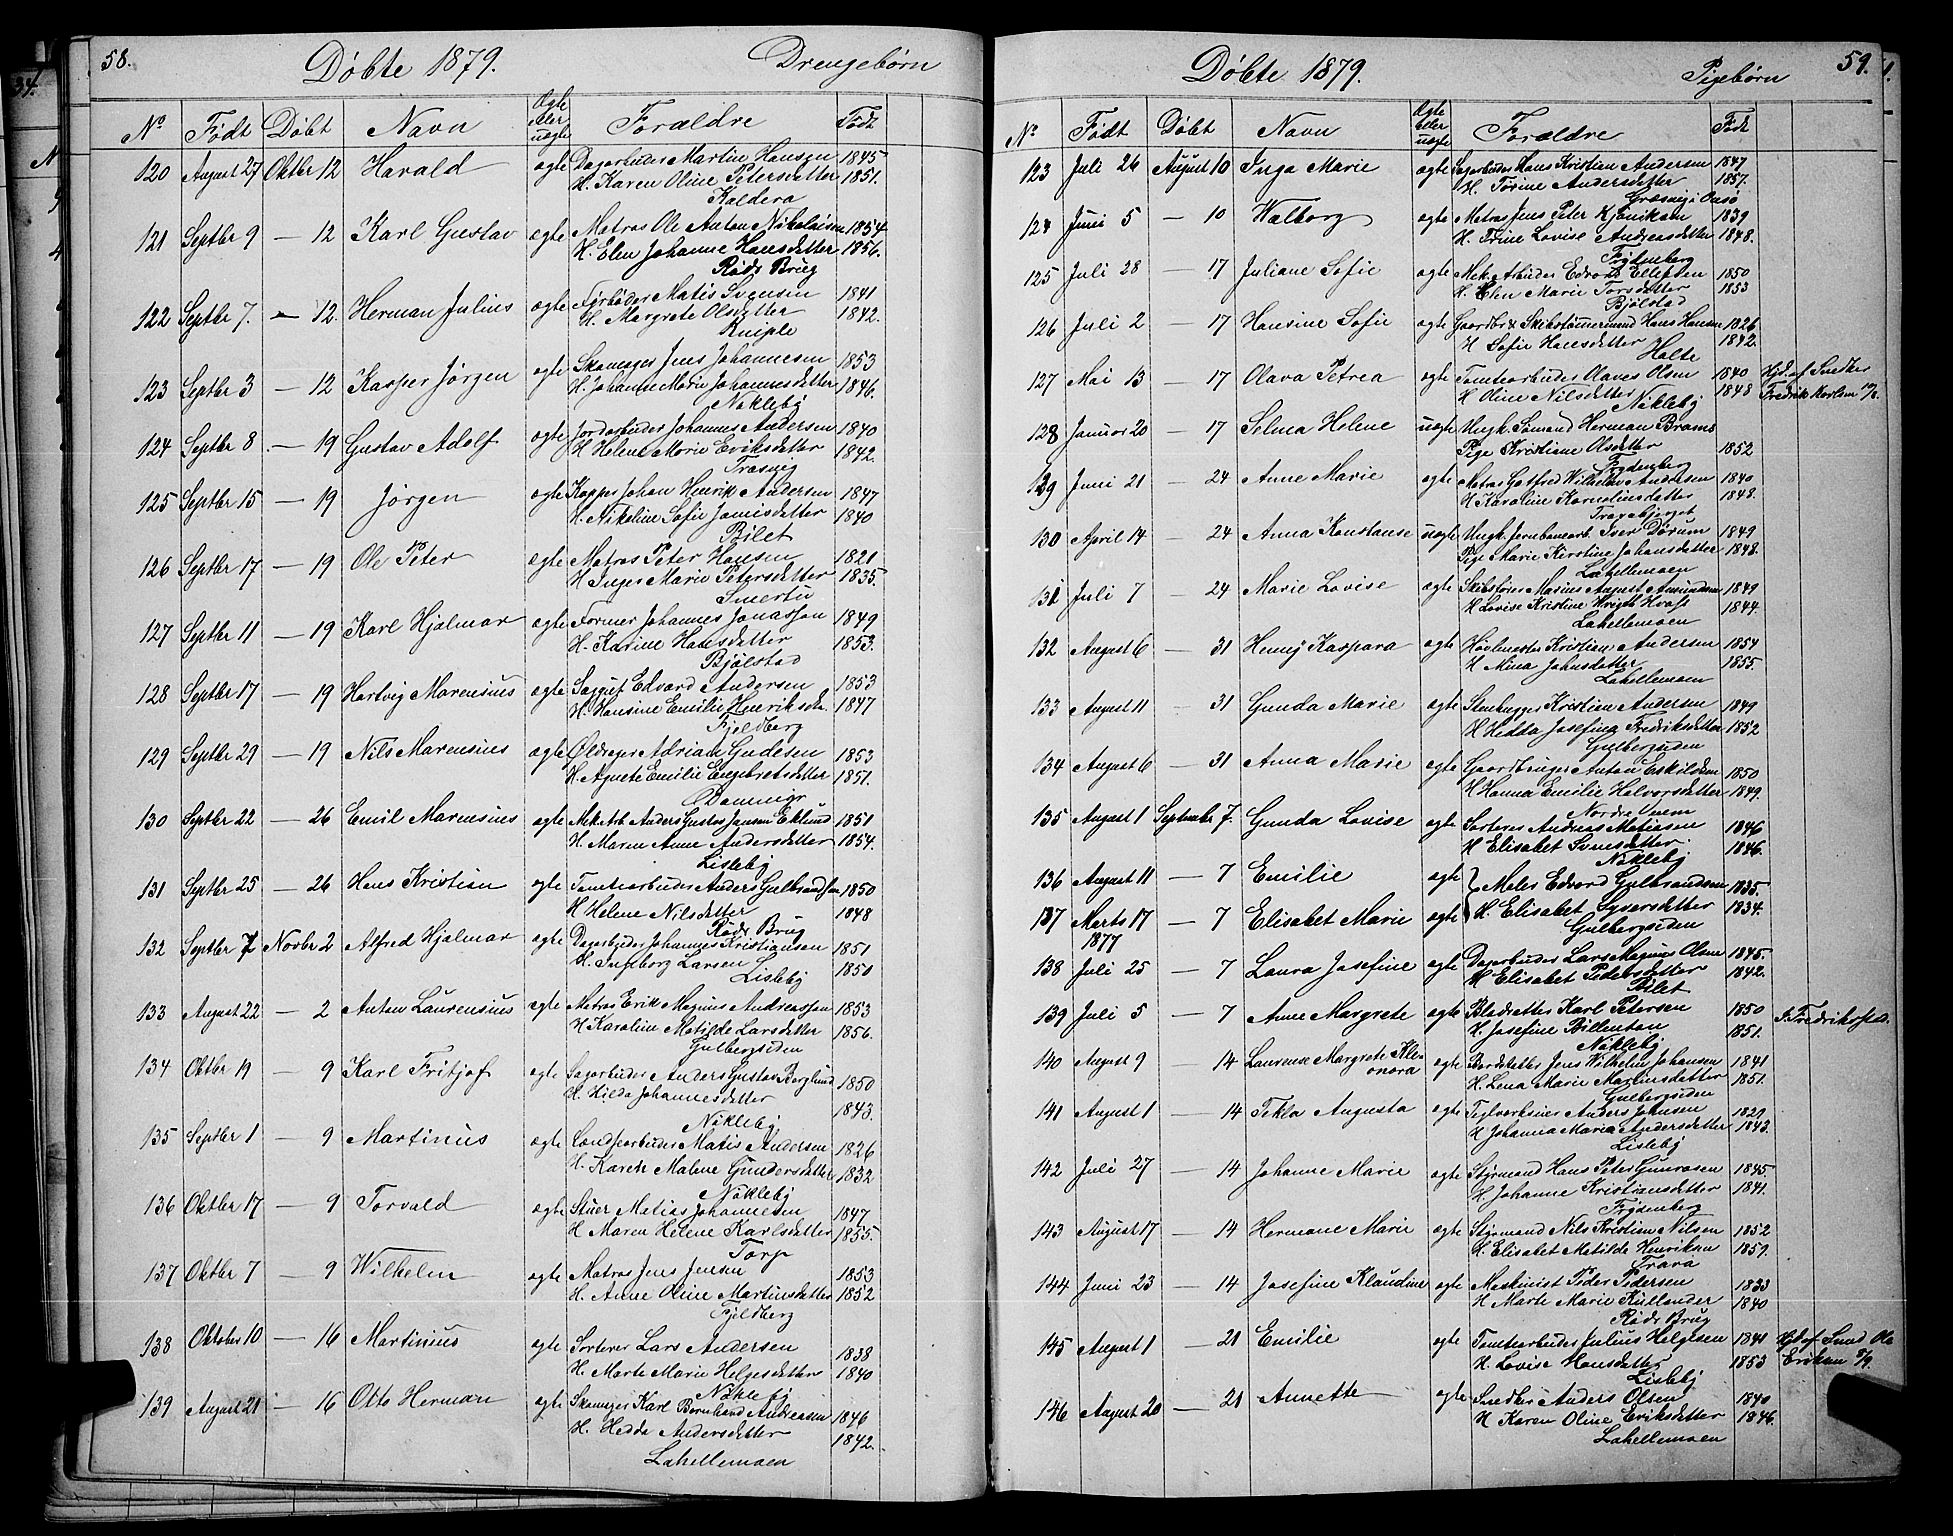 58.
Døbte 1879.
Drengebørn
No
Født
Døbt
Navn
Ægte eller uægte
Forældre
Født
120 August 27 Oktbr 12 Harald ægte Dagarbeider Martin Hansen 1845
H. Karen Oline Petersdatter 1851.
Kaldera
121 Septbr 9 — 12 Karl Gustav ægte Matros Ole Anton Nikolaisen 1854
H. Elen Johanne Hansdatter 1856.
Røds Brug
122 Septbr 7. — 12. Herman Julius ægte Førbøder Matis Svensen 1841
H. Margrete Olsdatter 1842.
Kniple
123 Septbr 3 — 12 Kasper Jørgen ægte Skomager Jens Johannesen 1853
H. Johanne Marie Johannesdatter 1846.
Nøkleby
124 Septbr 8 — 19 Gustav Adolf ægte Jordarbeider Johannes Andersen 1840
H Helene Marie Eriksdatter 1842.
Trosvig
125 Septbr 15 — 19 Jørgen ægte Kapper Johan Henrik Andersen 1847
H. Nikoline Sofie Jonisdatter 1840
Bilet
126 Septbr 17 — 19 Ole Peter ægte Matros Peter Hansen 1821
H Inger Marie Petersdatter 1835.
Smertu
127 Septbr 11 — 19 Karl Hjalmar ægte Former Johannes Jonassson 1849
H. Karine Hansdatter 1853.
Bjølstad
128 Septbr 17 — 19 Hartvig Marensius ægte Sagfuf Edvard Andersen 1853
H. Hansine Emilie Henriksda. 1847
Fjeldberg
129 Septbr 29 — 19 Nils Marensius ægte Øldrager Adrian Gudesen 1853
H. Agnete Emilie Engebretsdatter 1851.
130 Septbr 22 — 26 Emil Marensius ægte Mek Arb Anders Gustav Jansen Eklund 1851
H. Maren Anne Andersdatter 1854.
Lisleby
131 Septbr 25 — 26 Hans Kristian ægte Tomtearbeider Anders Gulbrandsen 1850
H Helene Nilsdatter 1848
Røds Brug
132 Septbr 7 Novbr 2 Alfred Hjalmar ægte Dagarbeider Johannes Kristiansen 1851
H. Ingeborg Larsen 1850
Lisleby
133 August 22 — 2 Anton Laurensius ægte Matros Erik Magnus Andreassson 1853
H Karoline Matilde Larsdatter 1856.
Gulbergsiden
134 Oktbr 19 — 9 Karl Fritjof ægte Sagarbeider Anders Gustav Berglund 1850
H. Hilda Johannesdatter 1843.
Nøkleby
135 Septbr 1 — 9 Martinius ægte Landsarbeider Matis Andersen 1826
H. Karen Malene Gundersdatter 1832
Nøkleby
136 Oktbr 17 — 9 Torvald ægte Stuer Matias Johannesen 1847
H Maren Helene Karlsdatter 1855.
Torp
137 Oktbr 7 — 9 Wilhelm ægte Matros Jens Jensen 1853
H. Anne Oline Martinsdatter 1852
Fjeldberg
138 Oktober 10 — 16 Martinius ægte Sorterer Lars Andersen 1838
H. Marte Marie Helgesdatter 1840
Nøkleby
139 August 21 — 16 Otto Herman ægte Skomager Karl Bernhard Andreasen 1846
H. Hedda Andersdatter 1842.
Lahellemoen
59.
Døbte 1879.
Pigebørn
No
Født
Døbt
Navn
Ægte eller uægte
Forældre
Født
123 Juli 26 August 10 Inga Marie ægte Sagarbeider Hans Kristian Andersen 1847
H. Torine Andersdatter 1857.
Græsvig i Onsø
124 Juni 5 — 10 Walborg ægte Matros Jens Peter Kjøniksen 1839
H. Trine Lovise Andreasdatter 1848.
Frydenberg
125 Juli 28 — 17 Juliane Sofie ægte Mek. Arbeider Edvard Ellefsen 1850
H. Elen Marie Torsdatter 1853
Bjølstad
126 Juli 2 — 17 Hansine Sofie ægte Gaardbr & Skibstømmermand Hans Hansen 1826
H Sofie Hansdatter 1842.
Holte
127 Mai 13 — 17 Olava Petrea ægte Tomtearbeider Olaves Olsen 1840 Hjd. af Snedker
H Oline Nilsdatter 1848 Fredrik Karlsen 10/6.
Nøkleby
128 Januar 20 — 17 Selma Helene uægte Ungk. Sømand Herman Brams
Pige Kristiane Olsdatter 1852
Frydenberg
129 Juni 21 — 24 Anne Marie ægte Matros Gotfred Wilhelm Andersen 1840
H Karoline Korneliusdatter 1848.
Travebjerget
130 April 14 — 24 Anna Konstanse uægte Ungk. Jernbanearb. Iver Dørum 1849
Pige Marie Kirstine Johansdatter 1848.
Lahellemoen
131 Juli 7 — 24 Marie Lovise ægte Skibsfører Marius August Amundsen 1849
H Lovise Kristine Wright Hvass 1844.
Lahellemoen
132 August 6 — 31 Henny Kaspara ægte Høvlmester Kristian Andersen 1854
H Mina Johnsdatter 1855.
Lahellemoen
133 August 11 — 31 Gunda Marie ægte Stenhugger Kristian Andersen 1849
H Hedda Josefina Fredriksdatter 1852
Gulbergsiden
134 August 6 — 31 Anna Marie ægte Gaardbruger Anton Eskildsen 1850
H Hanna Emilie Halvorsdatter 1849.
Nordre Veum
135 August 1 September 7. Gunda Lovise ægte Sorterer Andreas Matiasen 1846
H Elisabet Svensdatter 1846.
Nøkleby
136 August 11 — 7 Emilie ægte Maler Edvard Gulbrandsen 1835.
137 Marts 17 1877 — 7 Elisabet Marie ægte H. Elisabet Syversdatter 1834.
Gulbergsiden
138 Juli 25 — 7 Laura Josefine ægte Dagarbeider Lars Magnus Olsen 1845.
H Elisabet Pedersdatter 1842.
Bilet
139 Juli 5 — 7 Anne Margrete ægte Bladsætter Karl Petersen 1850 i Fredrikstad.
H. Josefine Billenton 1851.
Nøkleby
140 August 9 — 14 Laurense Margrete Kleonora ægte Bordsætter Jens Wilhelm Johansen 1841
H. Lena Marie Martinsdatter 1851.
Gulbergsiden
141 August 1 — 14 Tekla Augusta ægte Teglverkseier Anders Johnsen 1829
H Johanna Maria Andersdatter 1843.
Lisleby
142 Juli 27 — 14 Johanne Marie ægte Styrmand Hans Peter Gunrosen 1845
H. Johanne Kristiansdatter 1841.
Frydenberg
143 August 17 — 14 Hermane Marie ægte Styrmand Nils Kristian Nilsen 1852
H. Elisabet Matilde Henriksen 1859.
Trara
144 Juni 23 — 14 Josefine Klaudine ægte Maskinist Peder Pedersen 1833
H Marte Marie Kullander 1840
Røds Brug
145 August 1 — 21 Emilie ægte Tomtearbeider Julius Helgesen 1841 Hjd. af Smed Ole
H. Lovise Hansdatter 1853 Eriksen 2/9.
Lisleby
146 August 20 — 21 Annette ægte Snedker Anders Olsen 1840
H Karen Oline Eriksdatter 1846.
Lahellemoen